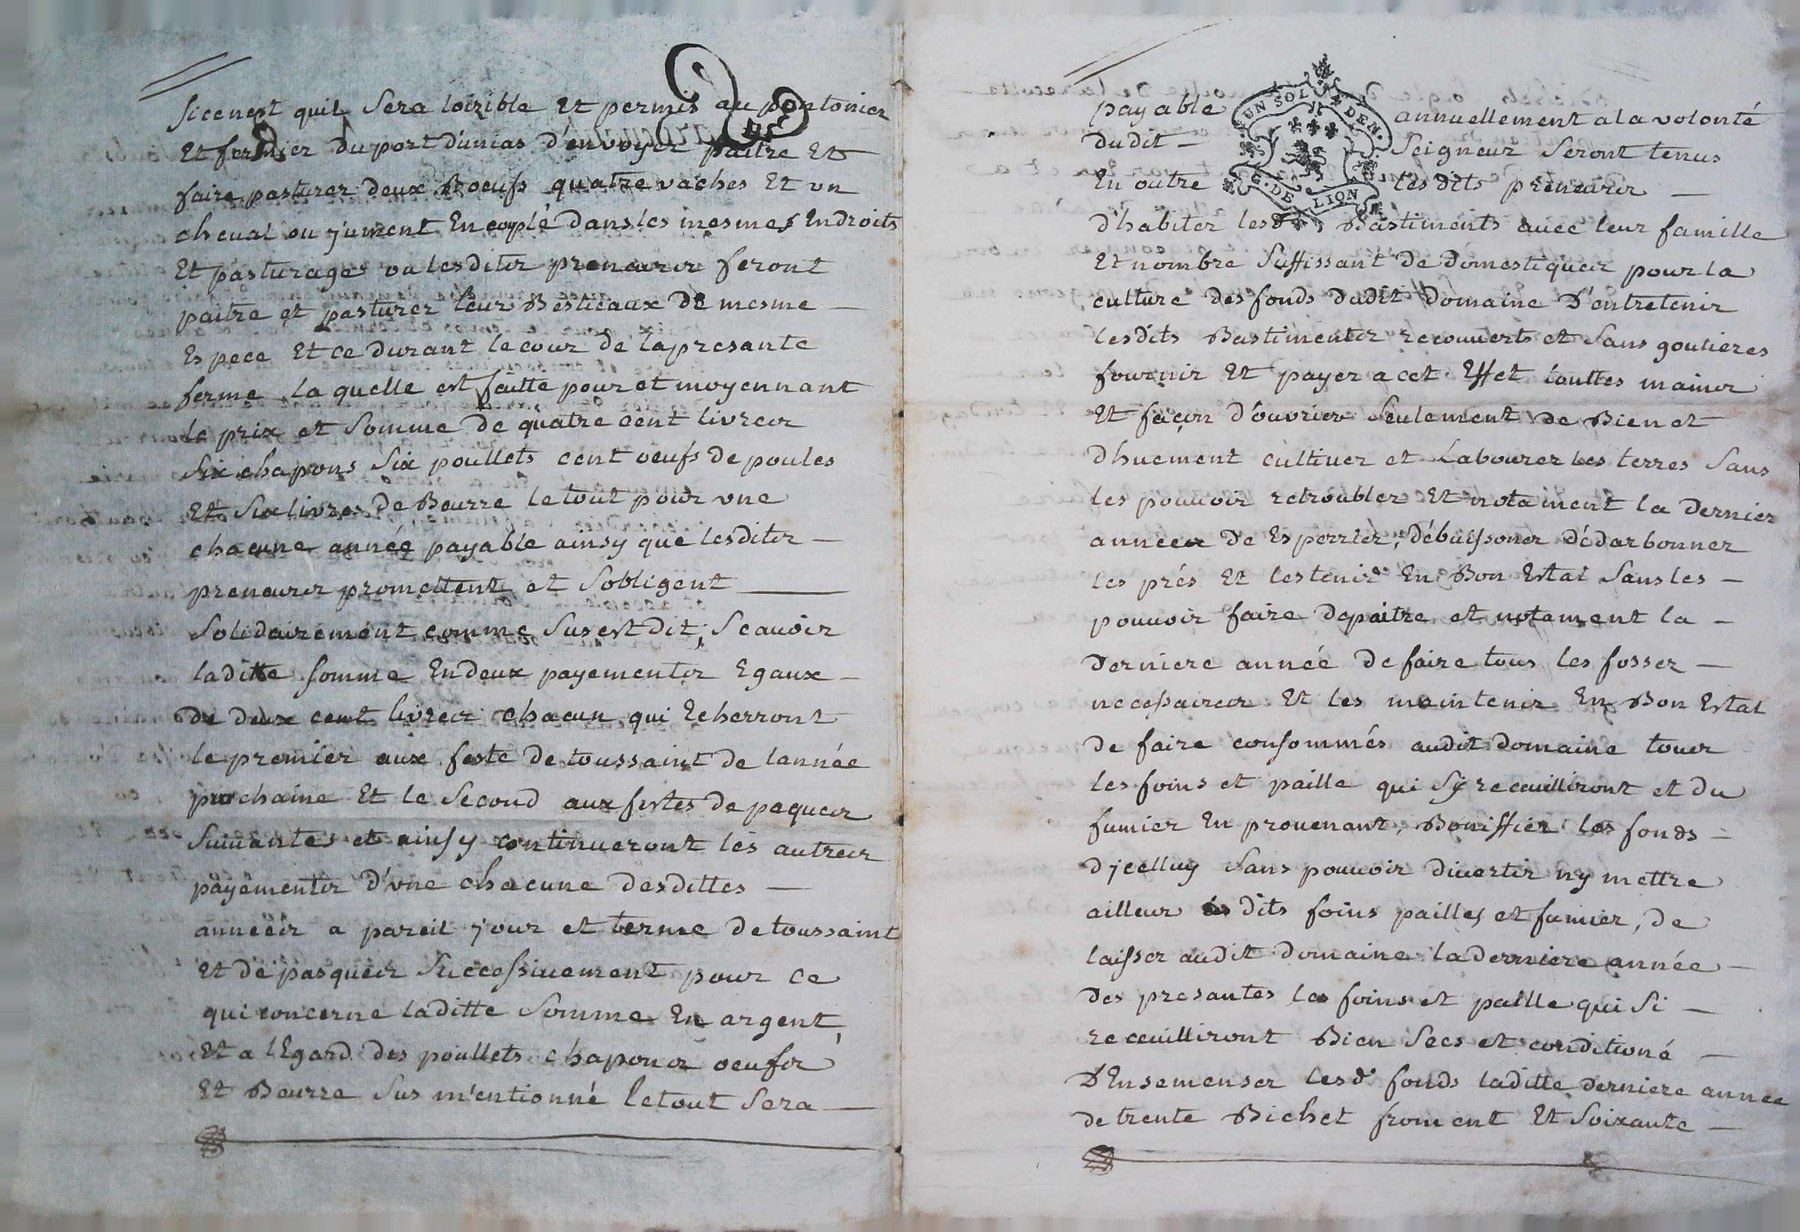 Sicenest quil Sera loizible Et permis au pontonier
Et fermier du port d'anias d'envoyer paitre Et
faire pasturer deux Boeufs quatre vaches Et vn
cheval ou j'ument En coplé dans les mesmes Endroits
Et pasturages ou lesdits preneurs feront
paitre et pasturer leur Bestieaux de mesme
Espece Et ce durant le cour de la presante
ferme la quelle est faitte pour et moyennant
le prix et Somme de quatre cent livres
Six chapons Six poullets cent oeufs de poules
Et Six livres de Beurre le tout pour vne
chacune année payable ainsy que lesdits
preneurs promettent et Sobligent
Solidairement comme Sus est dit, Scavoir
laditte Somme En deux payements Egaux
de deux cent livres chacun qui Echerront
le premier aux feste de toussaint de lannée
prochaine Et le Second aux festes de paques
Suivantes et ainsy continueront les autres
payements d'vne chacune desdittes
années a pareil jour et terme de toussaint
Et de pasques Successivement pour ce
qui concerne laditte Somme En argent
Et a lEgard des poullets chapons oeufs
Et Beurre Sus mentionné le tout Sera
payable annuellement a la volonté
dudit Seigneur Seront tenus
En outre lesdits preneurs
d'habiter lesd. Bastiments avec leur famille
Et nombre Suffissant de domestiques pour la
culture des fonds dudit domaine D'entretenir
lesdits Bastiments recouverts et Sans goutieres
fournir Et payer a cet Effet touttes mains
Et façon d'ouvrier Seulement de Bien et
dhuement cultiver et Labourer les terres Sans
les pouvoir retroubler Et notament la dernier
années de Esperrer, débuissoner dédarbonner
les prés Et les tenir En Bon Estat Sans les
pouvoir faire depaitre et notament la
derniere année de faire tous les fosser
necessaires Et les maintenir En Bon Estat
de faire consommés audit domaine tous
les foins et paille qui Sy receuilliront et du
fumier En provenant, Boniffier les fonds
d'jcelluy Sans pouvoir divertir ny mettre
ailleur les dits foins pailles et fumier, de
laisser audit domaine la derniere année
des presantes les foins et paille qui Si
receuilliront Bien Secs et conditioné
D'Ensemenser lesd. fonds laditte derniere année
de trente Bichet froment Et Soixante
UN SOL 4 DEN.
G. DE LION